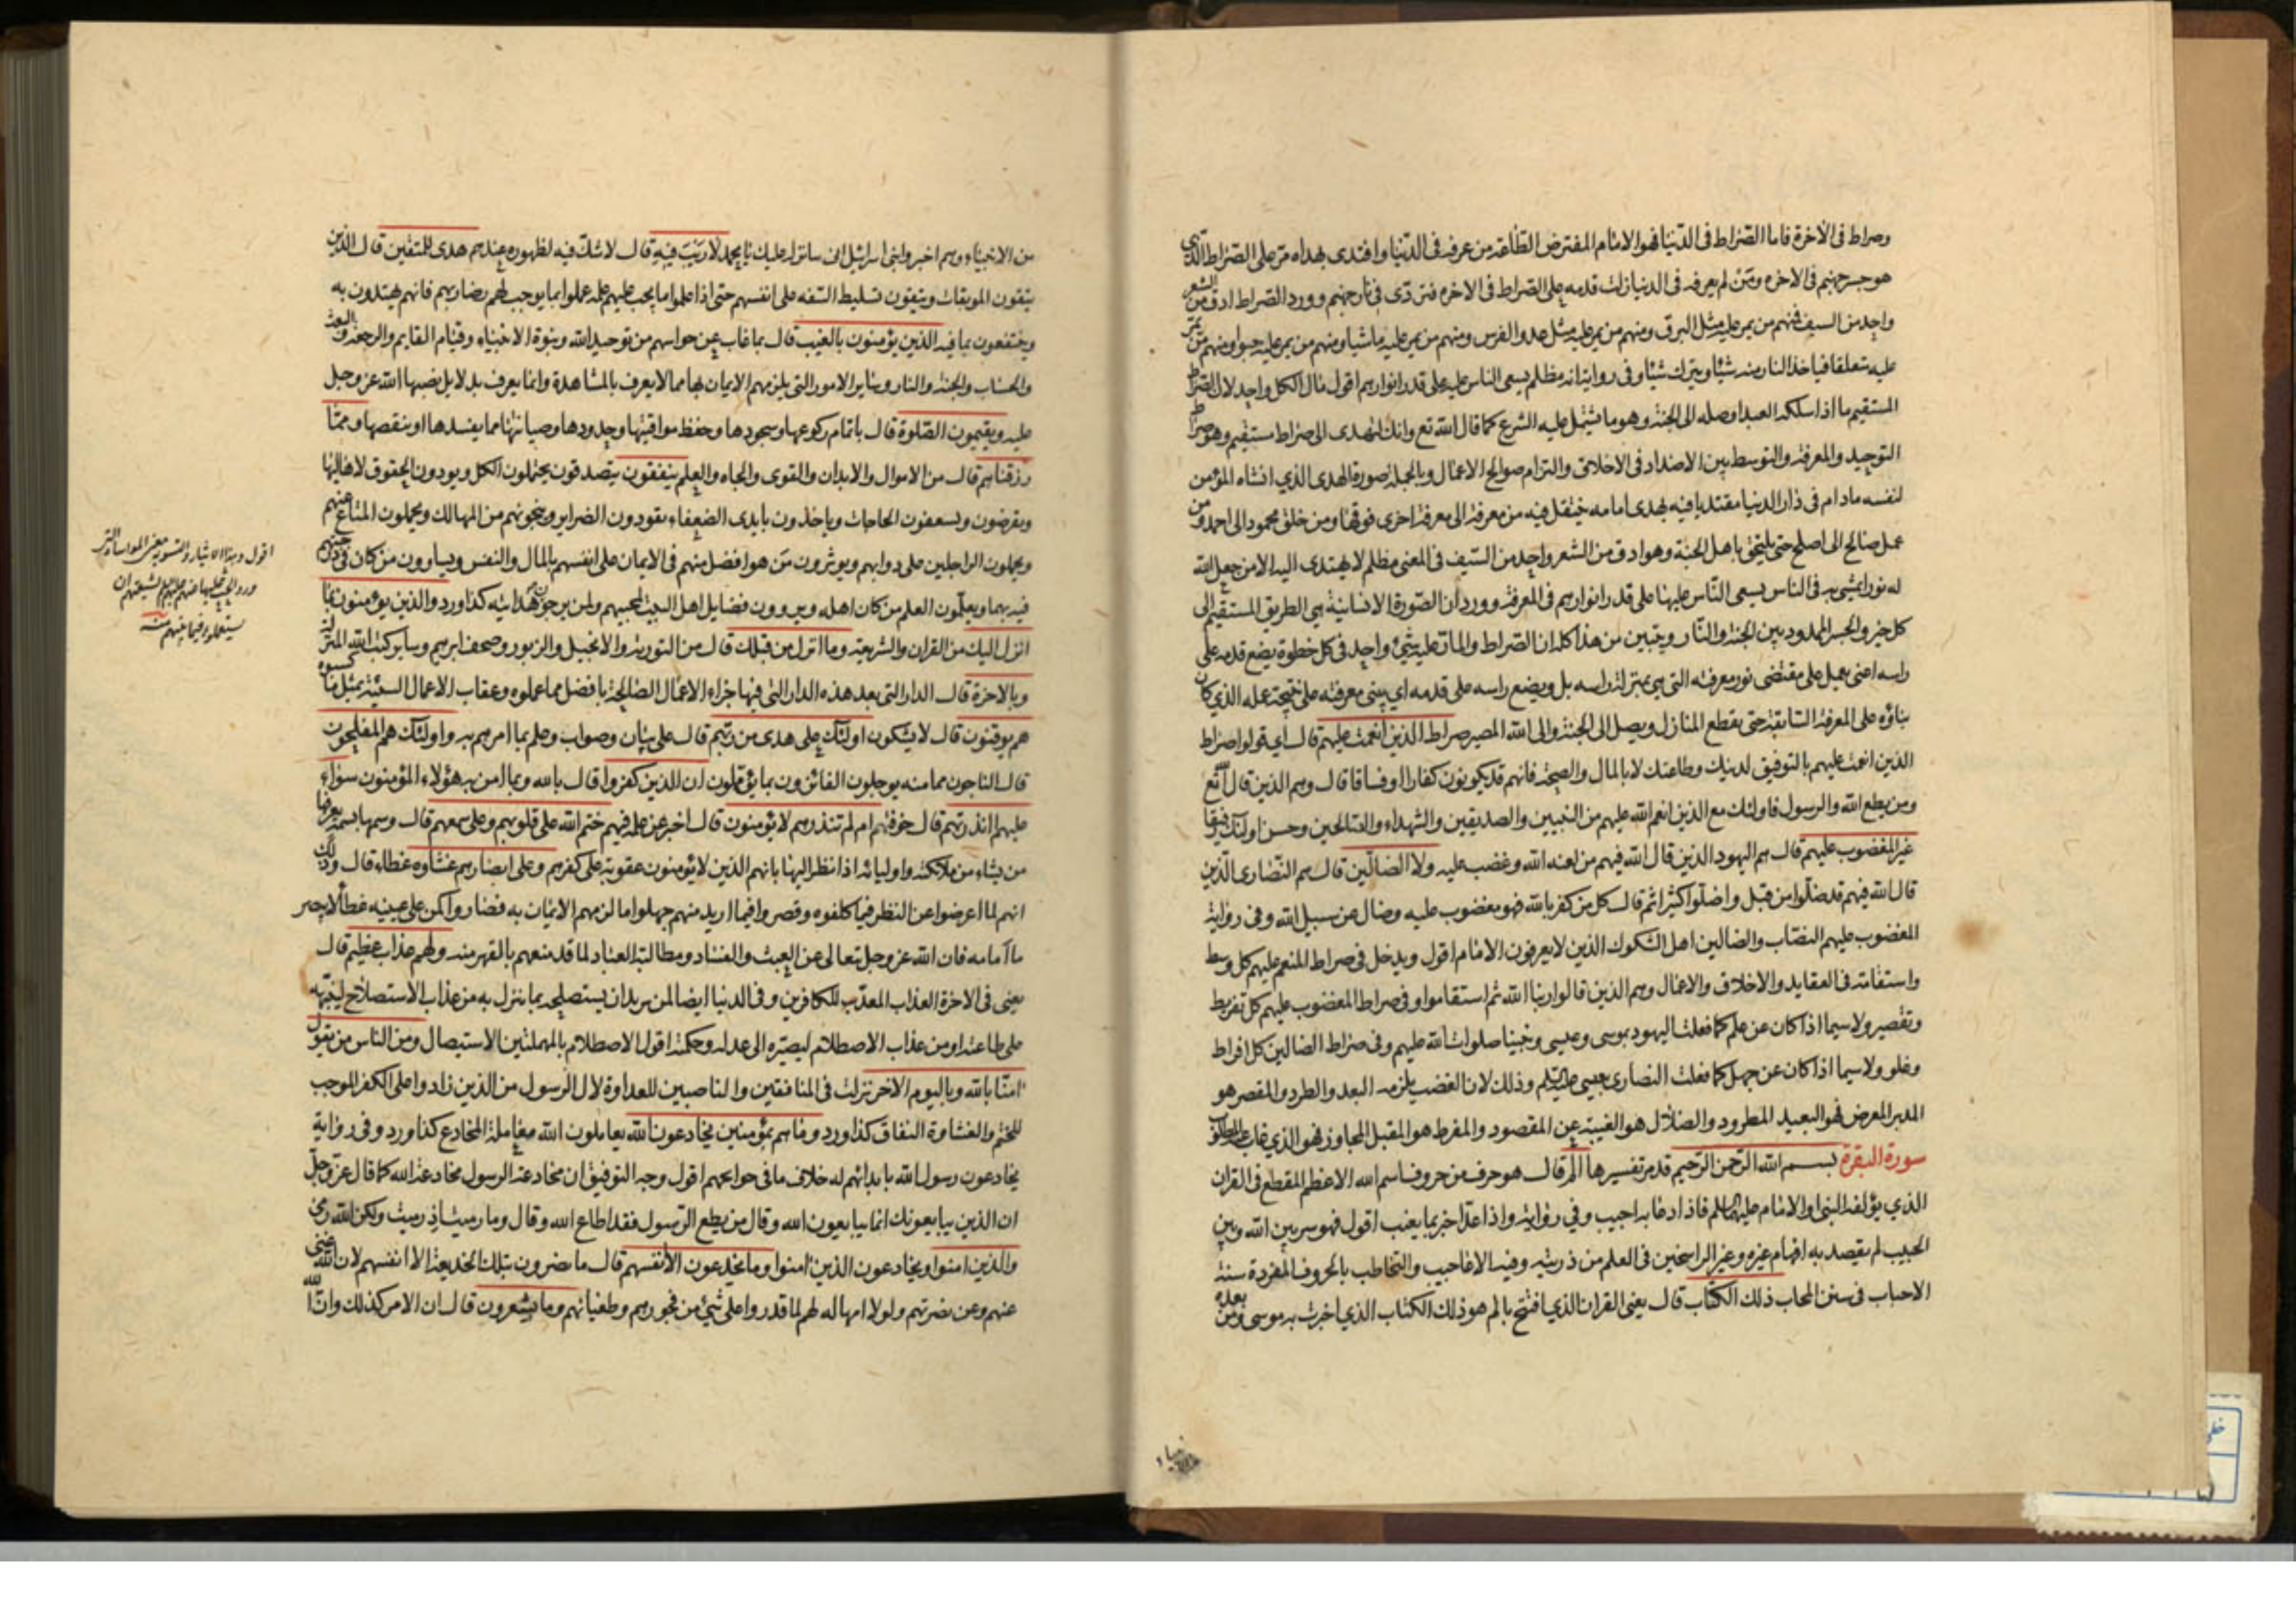 وصراط فى الآخرة فاما الصراط فى الدنيا فهو الامام المفترض الطاعة من عرفه فى الدنيا واقتدى بهداه مرّ على الصراط الذى
هو جسر جهنم فى الاخره ومن لم يعرفه فى الدنيا زلت قدمه على الصراط فى الاخره فتردّى فى نار جهنم وورد الصراط ادق من الشعر
واحد من السيف فمنهم من يمر عليه مثل البرق ومنهم من يمر عليه مثل عدو الفرس ومنهم من يمر عليه ماشيا ومنهم من يمر عليه حبوا ومنهم من يمر
عليه متعلقا فياخذ النار منه شيئا ويترك شيئا وفى رواية انه مظلم يسعى الناس عليه على قدر انوارهم اقول مال الكل واحد لان الصراط
المستقيم ما اذا سلكه العبد اوصله الى الجنة وهو ما يشتمل عليه الشرع كما قال الله تع وانك لتهدى الى صراط مستقيم وهو صراط
التوحيد والمعرفة والتوسط بين الاضداد فى الاخلاق والتزام صوالح الاعمال وبالجملة صورة الهدى الذي انشاه المؤمن
لنفسه مادام فى دار الدنيا مقتديا فيه بهدى امامه يتنقل فيه من معرفة الى معرفة اخرى فوقها ومن خلق محمود الى احمد ومن
عمل صالح الى اصلح حتى يلتحق باهل الجنة وهو ادق من الشعر واحد من السيف فى المعنى مظلم لا يهتدى اليه الا من جعل الله
له نورا يمشى به فى الناس يسعى الناس عليها على قدر انوارهم فى المعرفة وورد ان الصورة الانسانية هى الطريق المستقيم الى
كل خير والجسر الممدود بين الجنة والنار ويتبين من هذا كله ان الصراط والمار عليه شيئ واحد فى كل خطوة يضع قدمه على
راسه اعنى يعمل على مقتضى نور معرفته التى هى بمنزلة راسه بل ويضع راسه على قدمه اي يبنى معرفته على نتيجة عمله الذي كان
بناؤه على المعرفة السابقة حتى يقطع المنازل ويصل الى الجنة والى الله المصير صراط الذين انعمت عليهم قال اي قولوا صراط
الذين انعمت عليهم بالتوفيق لدينك وطاعتك لا بالمال والصحة فانهم قد يكونون كفارا او فساقا قال وهم الذين قال الله تع
ومن يطع الله والرسول فاولئك مع الذين انعم الله عليهم من النبيين والصديقين والشهداء والصالحين وحسن اولئك رفيقا
غير المغضوب عليهم قال هم اليهود الذين قال الله فيهم من لعنه الله وغضب عليه ولا الضالّين قال هم النصارى الذين
قال الله فيهم قد ضلّوا من قبل واضلّوا كثيرا ثم قال كل من كفر بالله فهو مغضوب عليه وضال عن سبيل الله وفى رواية
المغضوب عليهم النصّاب والضالين اهل الشكوك الذين لا يعرفون الامام اقول ويدخل فى صراط المنعم عليهم كل وسط
واستقامة فى العقايد والاخلاق والاعمال وهم الذين قالوا ربنا الله ثم استقاموا وفى صراط المغضوب عليهم كل تفريط
وتقصير ولاسيما اذا كان عن علم كما فعلت اليهود بموسى وعيسى ونبينا صلوات الله عليهم وفى صراط الضالين كل افراط
وغلو ولاسيما اذا كان عن جهل كما فعلت النصارى بعيسى عليه السلم وذلك لان الغضب يلزمه البعد والطرد والمقصر هو
المدبر المعرض فهو البعيد المطرود والضلال هو الغيبة عن المقصود والمفرط هو المقبل المجاوز فهو الذي غاب عنه المطلوب
سورة البقرة بسم الله الرّحمن الرّحيم قد مر تفسيرها الم قال هو حرف من حروف اسم الله الاعظم المقطع فى القران
الذي يؤلفه النبى او الامام عليهما السلم فاذا دعا به اجيب وفي رواية واذا عدّ اخبر بما يغيب اقول فهو سر بين الله وبين
الحبيب لم يقصد به افهام غيره وغير الراسخين فى العلم من ذريته وفيه الاقاحيب والتخاطب بالحروف المفردة سنة
الاحباب فى سنن المحاب ذلك الكتاب قال يعنى القران الذي افتتح بالم هو ذلك الكتاب الذي اخبرت به موسى ومن بعده
من الانبياء وهم اخبروا بنى اسرائيل انى سانزله عليك يا محمد لا ريب فيه قال لا شك فيه لظهوره عندهم هدى للمتقين قال الذين
يتقون الموبقات ويتقون تسليط السفه على انفسهم حتى اذا علموا ما يجب عليهم علمه عملوا بما يوجب لهم رضا ربهم فانهم يهتدون به
وينتفعون بما فيه الذين يؤمنون بالغيب قال بما غاب عن حواسهم من توحيد الله ونبوة الانبياء وقيام القايم والرجعة والبعث
والحساب والجنة والنار وساير الامور التى يلزمهم الايمان بها مما لا يعرف بالمشاهدة وانما يعرف بدلايل نصبها الله عز وجل
عليه ويقيمون الصّلوة قال باتمام ركوعها وسجودها وحفظ مواقيتها وحدودها وصيانتها مما يفسدها او ينقصها وممّا
رزقناهم قال من الاموال والابدان والقوى والجاه والعلم ينفقون يتصدقون يحتملون الكل ويودون الحقوق لاهاليها
ويقرضون ويسعفون الحاجات وياخذون بايدى الضعفاء يقودون الضراير وينجونهم من المهالك ويحملون المتاع عنهم
ويحملون الراجلين على دوابهم ويوثرون من هو افضل منهم فى الايمان على انفسهم بالمال والنفس ويساوون من كان فى درجتهم
فيه بهما ويعلّمون العلم من كان اهله ويروون فضايل اهل البيت لمحبيهم ولمن يرجون هدايته كذا ورد والذين يؤمنون بما
انزل اليك من القران والشريعة وما انزل من قبلك قال من التورية والانجيل والزبور وصحف ابرهيم وساير كتب الله المنزلة
وبالاخرة قال الدار التى بعد هذه الدار التى فيها جزاء الاعمال الصالحة بافضل مما عملوه وعقاب الاعمال السيئة بمثل ما كسبوه
هم يوقنون قال لا يشكون اولئك على هدى من ربّهم قال على بيان وصواب وعلم بما امرهم به واولئك هم المفلحون
قال الناجون مما منه يوجلون الفائزون بما يؤمّلون ان الذين كفروا قال بالله وبما امن به هؤلاء المؤمنون سواء
عليهم أانذرتهم قال خوفتهم ام لم تنذرهم لا يؤمنون قال اخبر عن علمه فيهم ختم الله على قلوبهم وعلى سمعهم قال وسمها بسمة يعرفها
من يشاء من ملائكته واوليائه اذا نظر اليها بانهم الذين لا يؤمنون عقوبة على كفرهم وعلى ابصارهم غشاوه غطاء قال وذلك
انهم لما اعرضوا عن النظر فيما كلفوه وقصروا فيما اريد منهم جهلوا ما لزمهم الايمان به فصاروا كمن على عينيه غطأ لا يبصر
ما امامه فان الله عز وجل تعالى عن العبث والفساد ومطالبة العباد لما قد منعهم بالقهر منه ولهم عذاب عظيم قال
يعنى فى الاخرة العذاب المعدّ للكافرين وفى الدنيا ايضا لمن يريد ان يستصلحه بما ينزل به من عذاب الاستصلاح لينبّهه
على طاعته او من عذاب الاصطلام ليصيّره الى عدله وحكمته اقول الاصطلام بالمهملتين الاستيصال ومن الناس من يقول
امنّا بالله وباليوم الاخر نزلت فى المنافقين والناصبين للعداوة لال الرسول من الذين زادوا على الكفر الموجب
للختم والغشاوة النفاق كذا ورد وما هم بمؤمنين يخادعون الله يعاملون الله معاملة المخادع كذا ورد وفى رواية
يخادعون رسول الله بابدائهم له خلاف ما فى جوانحهم اقول وجه التوفيق ان مخادعة الرسول مخادعة الله كما قال عزّ وجلّ
ان الذين يبايعونك انما يبايعون الله وقال من يطع الرّسول فقد اطاع الله وقال وما رميت اذ رميت ولكن الله رمى
والذين امنوا ويخادعون الذين امنوا وما يخدعون الا انفسهم قال ما يضرون بتلك الخديعة الا انفسهم لان الله غنى
عنهم وعن نصرتهم ولولا امهاله لهم لما قدروا على شيئ من فجورهم وطغيانهم وما يشعرون قال ان الامر كذلك وان الله
اقول وبهذا الايثار والتسوية معنى المواساة التى